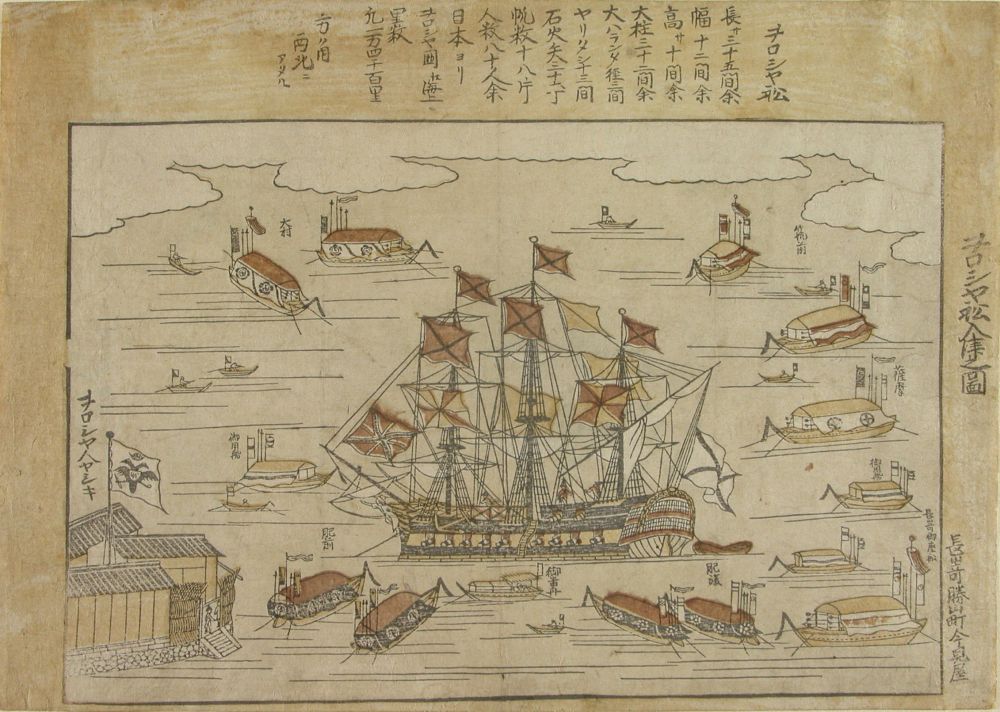 ヲロシヤ舩
長サ三十五間余
幅十二間余
高サ十間余
大柱三十二間余
ヤリダシ十三間
石火矢三十六丁
帆数十八片
人数八十人余
日本ヨリ
ヲロシヤ國迄海上
里数
凡一万四千百里
方角
西北ニ
アタル
ヲロシヤ舩入津之圖
長嵜勝山町今見屋
筑前
大村
薩摩
ヲロシヤ人ヤシキ
御用舩
御用舩
長嵜御座舩
肥前